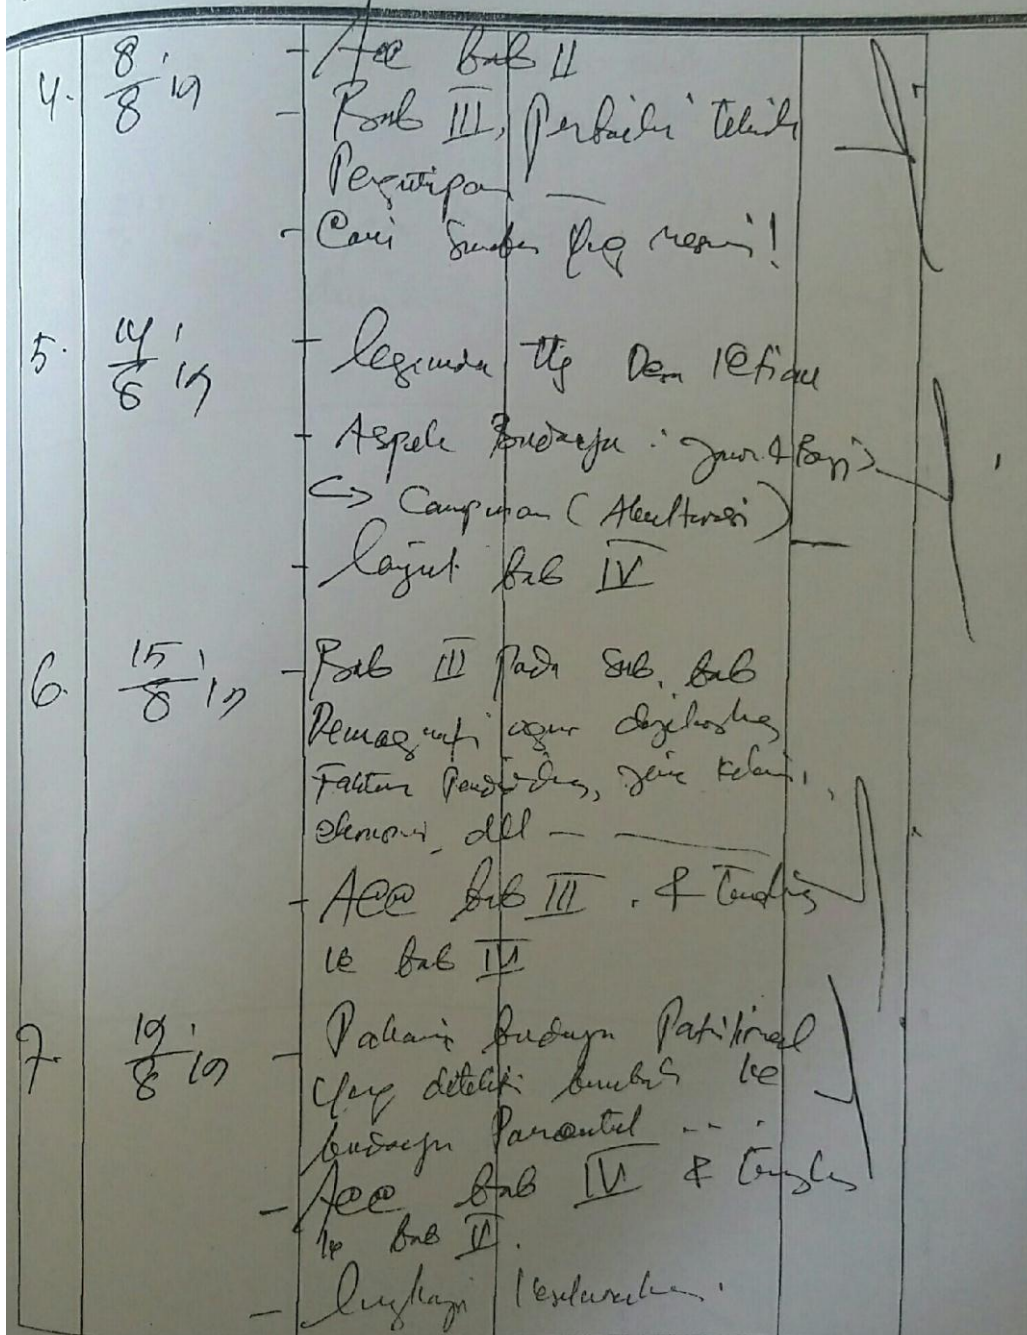 4. 8/8 '19 - Acc bab II
- Bab III, Perbaiki teknik
Pengutipan
- Cari Sumber yng resmi!
5. 14/8 '19 - legenda ttg Desa
- Aspek Budaya : Jawa &
↳ Campuran (Akulturasi)
- lanjut bab IV
6. 15/8 '19 - Bab III pada sub. bab
Demografi agar dijelaskan
Faktor Pendidikan, jenis kelamin,
ekonomi, dll
- Acc bab III. &
ke bab IV
7. 19/8 '19 - Pahami budaya Patilineal
yang diteliti berubah ke
budaya Parental ....
- Acc bab IV &
ke bab V.
- lengkapi keseluruhan.